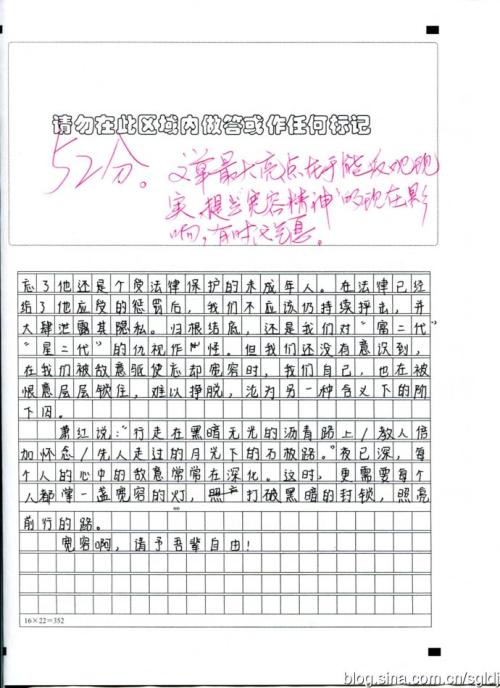 请勿在此区域内做答或作任何标记
52分。文章最大亮点在于能反观现
实，提出“宽容精神”的现在影
响，有时文气息。
忘了他还是个受法律保护的未成年人。在法律已经
给了他应受的惩罚后，我们不应该仍持续抨击，并
大肆泄露其隐私。归根结底，还是我们对“富二代”
“星二代”的仇视作怪。但我们还没有意识到，
在我们被敌意驱使忘却宽容时，我们自己，也在被
恨意层层锁住，难以挣脱，沦为另一种含义下的阶
下囚。
萧红说：“行走在黑暗无光的沥青路上/教人倍
加怀念/先人走过的月光下的石板路。”夜已深，每
个人的心中的敌意常常在深化。这时，更需要每个
人都掌一盏宽容的灯，打破黑暗的封锁，照亮
前行的路。
宽容啊，请予吾辈自由！
16×22=352
blog.sina.com.cn/sgldj